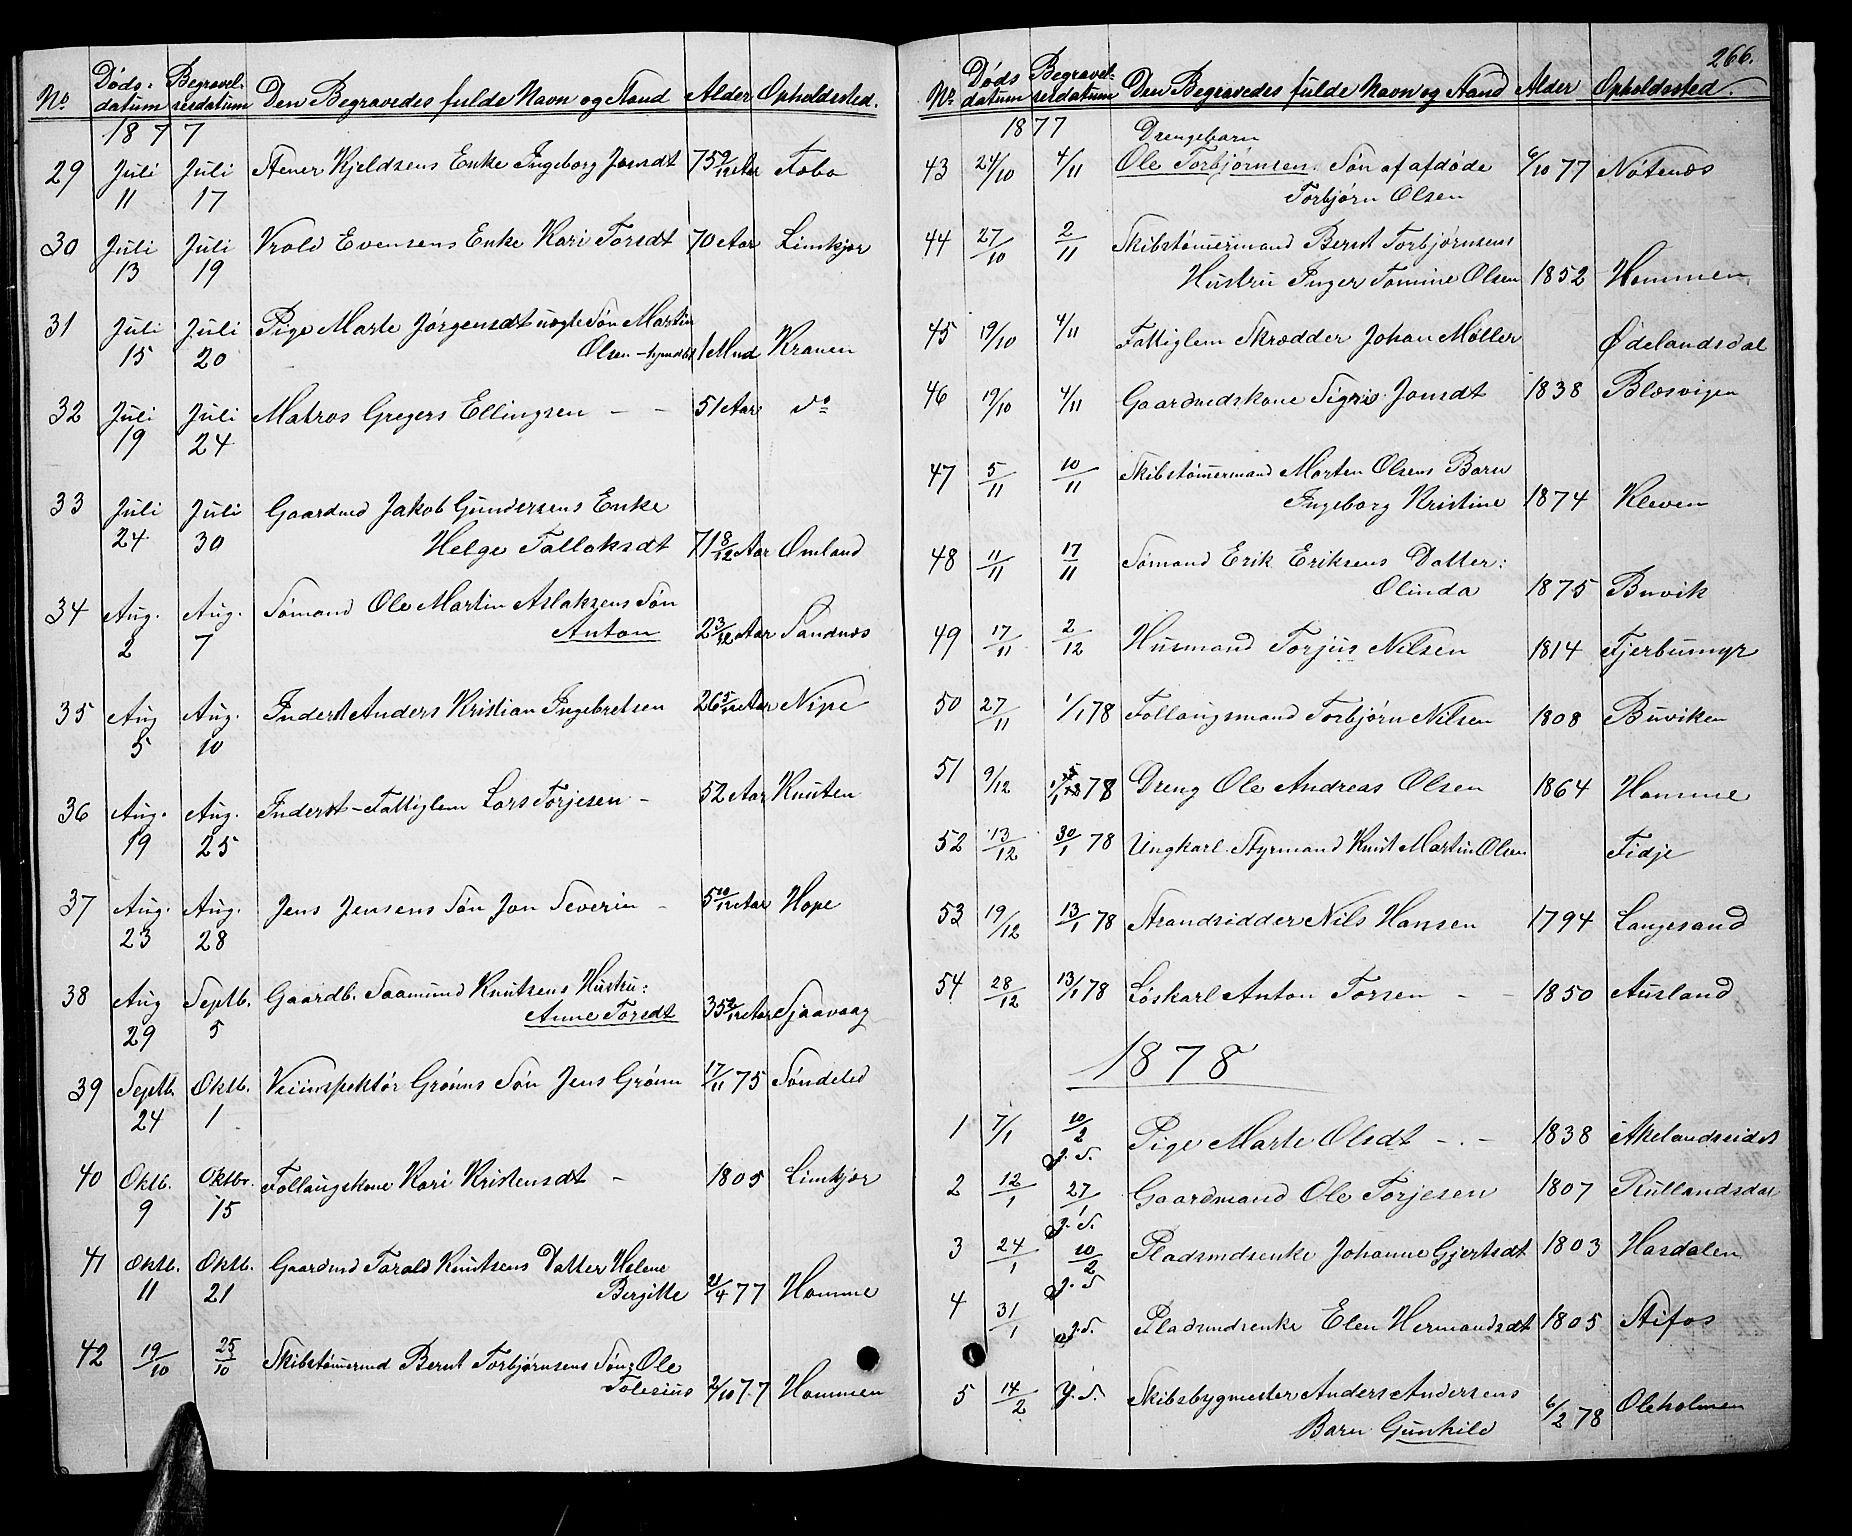 No. Døds-datum Begravelsesdatum Den Begravedes fulde Navn og Stand Alder Opholdssted.
1877
29 Juli 11 Juli 17 Stener Kjeldsens Enke Ingeborg Jonsdt 75 9/12 Aar Fobo
30 Juli 13 Juli 19 Vrold Evensens Enke Kari Torsdt 70 Aar Limkjær
31 Juli 15 Juli 20 Pige Marte Jørgensdt uegte Søn Martin
Olsen - hjmdbt 1 Mnd Kranen
32 Juli 19 Juli 24 Matros Gregers Ellingsen - - 51 Aar do
33 Juli 24 Juli 30 Gaardmd Jakob Gundersens Enke
Helge Tallaksdt 71 8/12 Aar Omland
34 Aug. 2 Aug. 7 Sømand Ole Martin Aslaksens Søn
Anton 2 3/12 Aar Sandnæs
35 Aug 5 Aug. 10 Inderst Anders Kristian Ingebretsen 26 5/12 Aar Nipe
36 Aug. 19 Aug. 25 Inderst - Fattiglem Lars Torjesen - 52 Aar Knuten
37 Aug. 23 Aug. 28 Jens Jensens Søn Jon Severin - 5 10/12 Aar Hope
38 Aug 29 Septb. 5 Gaardb. Saamund Knutsens Hustru:
Anne Torsdt 35 2/12 Aar Sjaavaag
39 Septb. 24 Oktb. 1 Veiinspektør Grønns Søn Jens Grønn 17/11 75 Søndeled
40 Oktb. 9 Oktbr. 15 Follaugskone Kari Kristensdt - 1805 Limkjær
41 Oktb. 11 Oktb. 21 Gaardmd Tarald Knutsens Datter Helene
Bergitte 21/4 77 Homme
42 19/10 25/10 Skibstømermd Bernt Torbjørnsens Søn: Ole
Tobesius 2/10 77 Hommen
266.
No. Døds datum Begravelsesdatum Den Begravedes fulde Navn og Stand Alder Opholdssted.
1877 Drengebarn
43 24/10 4/11 Ole Torbjørnsen. Søn af afdøde 6/10 77 Nøtenæs
Torbjørn Olsen
44 27/10 2/11 Skibstømermand Bernt Torbjørnsens
Hustru Inger Tomine Olsen 1852 Hommen
45 19/10 4/11 Fattiglem Skrædder Johan Møller Ødelandsdal
46 19/10 4/11 Gaardmdskone Sigri Jonsdt 1838 Blæsvigen
47 5/11 10/11 Skibstømermand Morten Olsens Barn
Ingeborg Kristine 1874 Kleven
48 11/11 17/11 Sømand Erik Eriksens Datter:
Olinda 1875 Buvik
49 17/11 2/12 Husmand Torjus Nilsen 1814 Fjerbumyr
50 27/11 1/1 78 Follaugsmand Torbjørn Nilsen 1808 Buviken
51 9/12 78 Dreng Ole Andreas Olsen 1864 Homme
52 13/12 30/1 78 Ungkarl Styrmand Knut Martin Olsen Fidje
53 19/12 13/1 78 Strandsidder Nils Hansen 1794 Langesand
54 28/12 13/1 78 Løskarl Anton Torsen - - 1850 Ausland
1878
1 7/1 10/2 Pige Marte Olsdt - . - 1838 Akelandseidet
J. S.
2 12/1 27/1 Gaardmand Ole Torjesen 1807 Rullandsdal
J. S.
3 24/1 10/2 Pladsmdsenke Johanne Gjertsdt 1803 Hasdalen
J. S
4 31/1 J. S. Pladsmdsenke Elen Hermandsdt 1805 Stifos
5 14/2 J. S. Skibsbygmester Anders Andersens
Barn Gunhild 6/2 78 Oleholmen